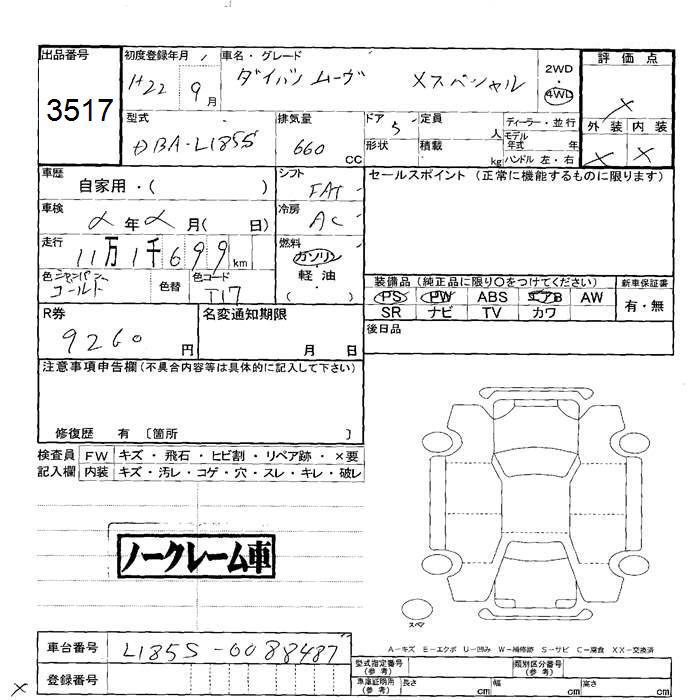 出品番号
3517
初度登録年月
H22 9月
車名・グレード
ダイハツ ムーヴ Xスペシャル
2WD
・
4WD
評価点
X
外装 内装
X X
型式
DBA-L185S
排気量
660 CC
ドア 5
形状
定員 人
積載 kg
ディーラー・並行
モデル
年式 年
ハンドル 左・右
車歴
自家用・( )
車検
年 月( 日)
走行
11万1千699km
色 シャンパン
ゴールド
色替
色コード
T17
シフト
FAT
冷房
AC
燃料
ガソリン
軽・油
( )
セールスポイント (正常に機能するものに限ります)
装備品 (純正品に限り○をつけてください)
PS PW ABS エアB AW
SR ナビ TV カワ
新車保証書
有・無
後日品
R券
9260 円
名変通知期限
月 日
注意事項申告欄(不具合内容等は具体的に記入して下さい)
修復歴 有 〔箇所 〕
検査員
記入欄
FW キズ・飛石・ヒビ割・リペア跡・×要
内装 キズ・汚レ・コゲ・穴・スレ・キレ・破レ
ノークレーム車
スペア
A-キズ E-エクボ U-凹み W-補修跡 S-サビ C-腐食 XX-交換済
車台番号 L185S-0088487
登録番号
型式指定番号
(参考)
類別区分番号
(参考)
車庫証明用
(参考)
長さ cm 幅 cm 高さ cm
X